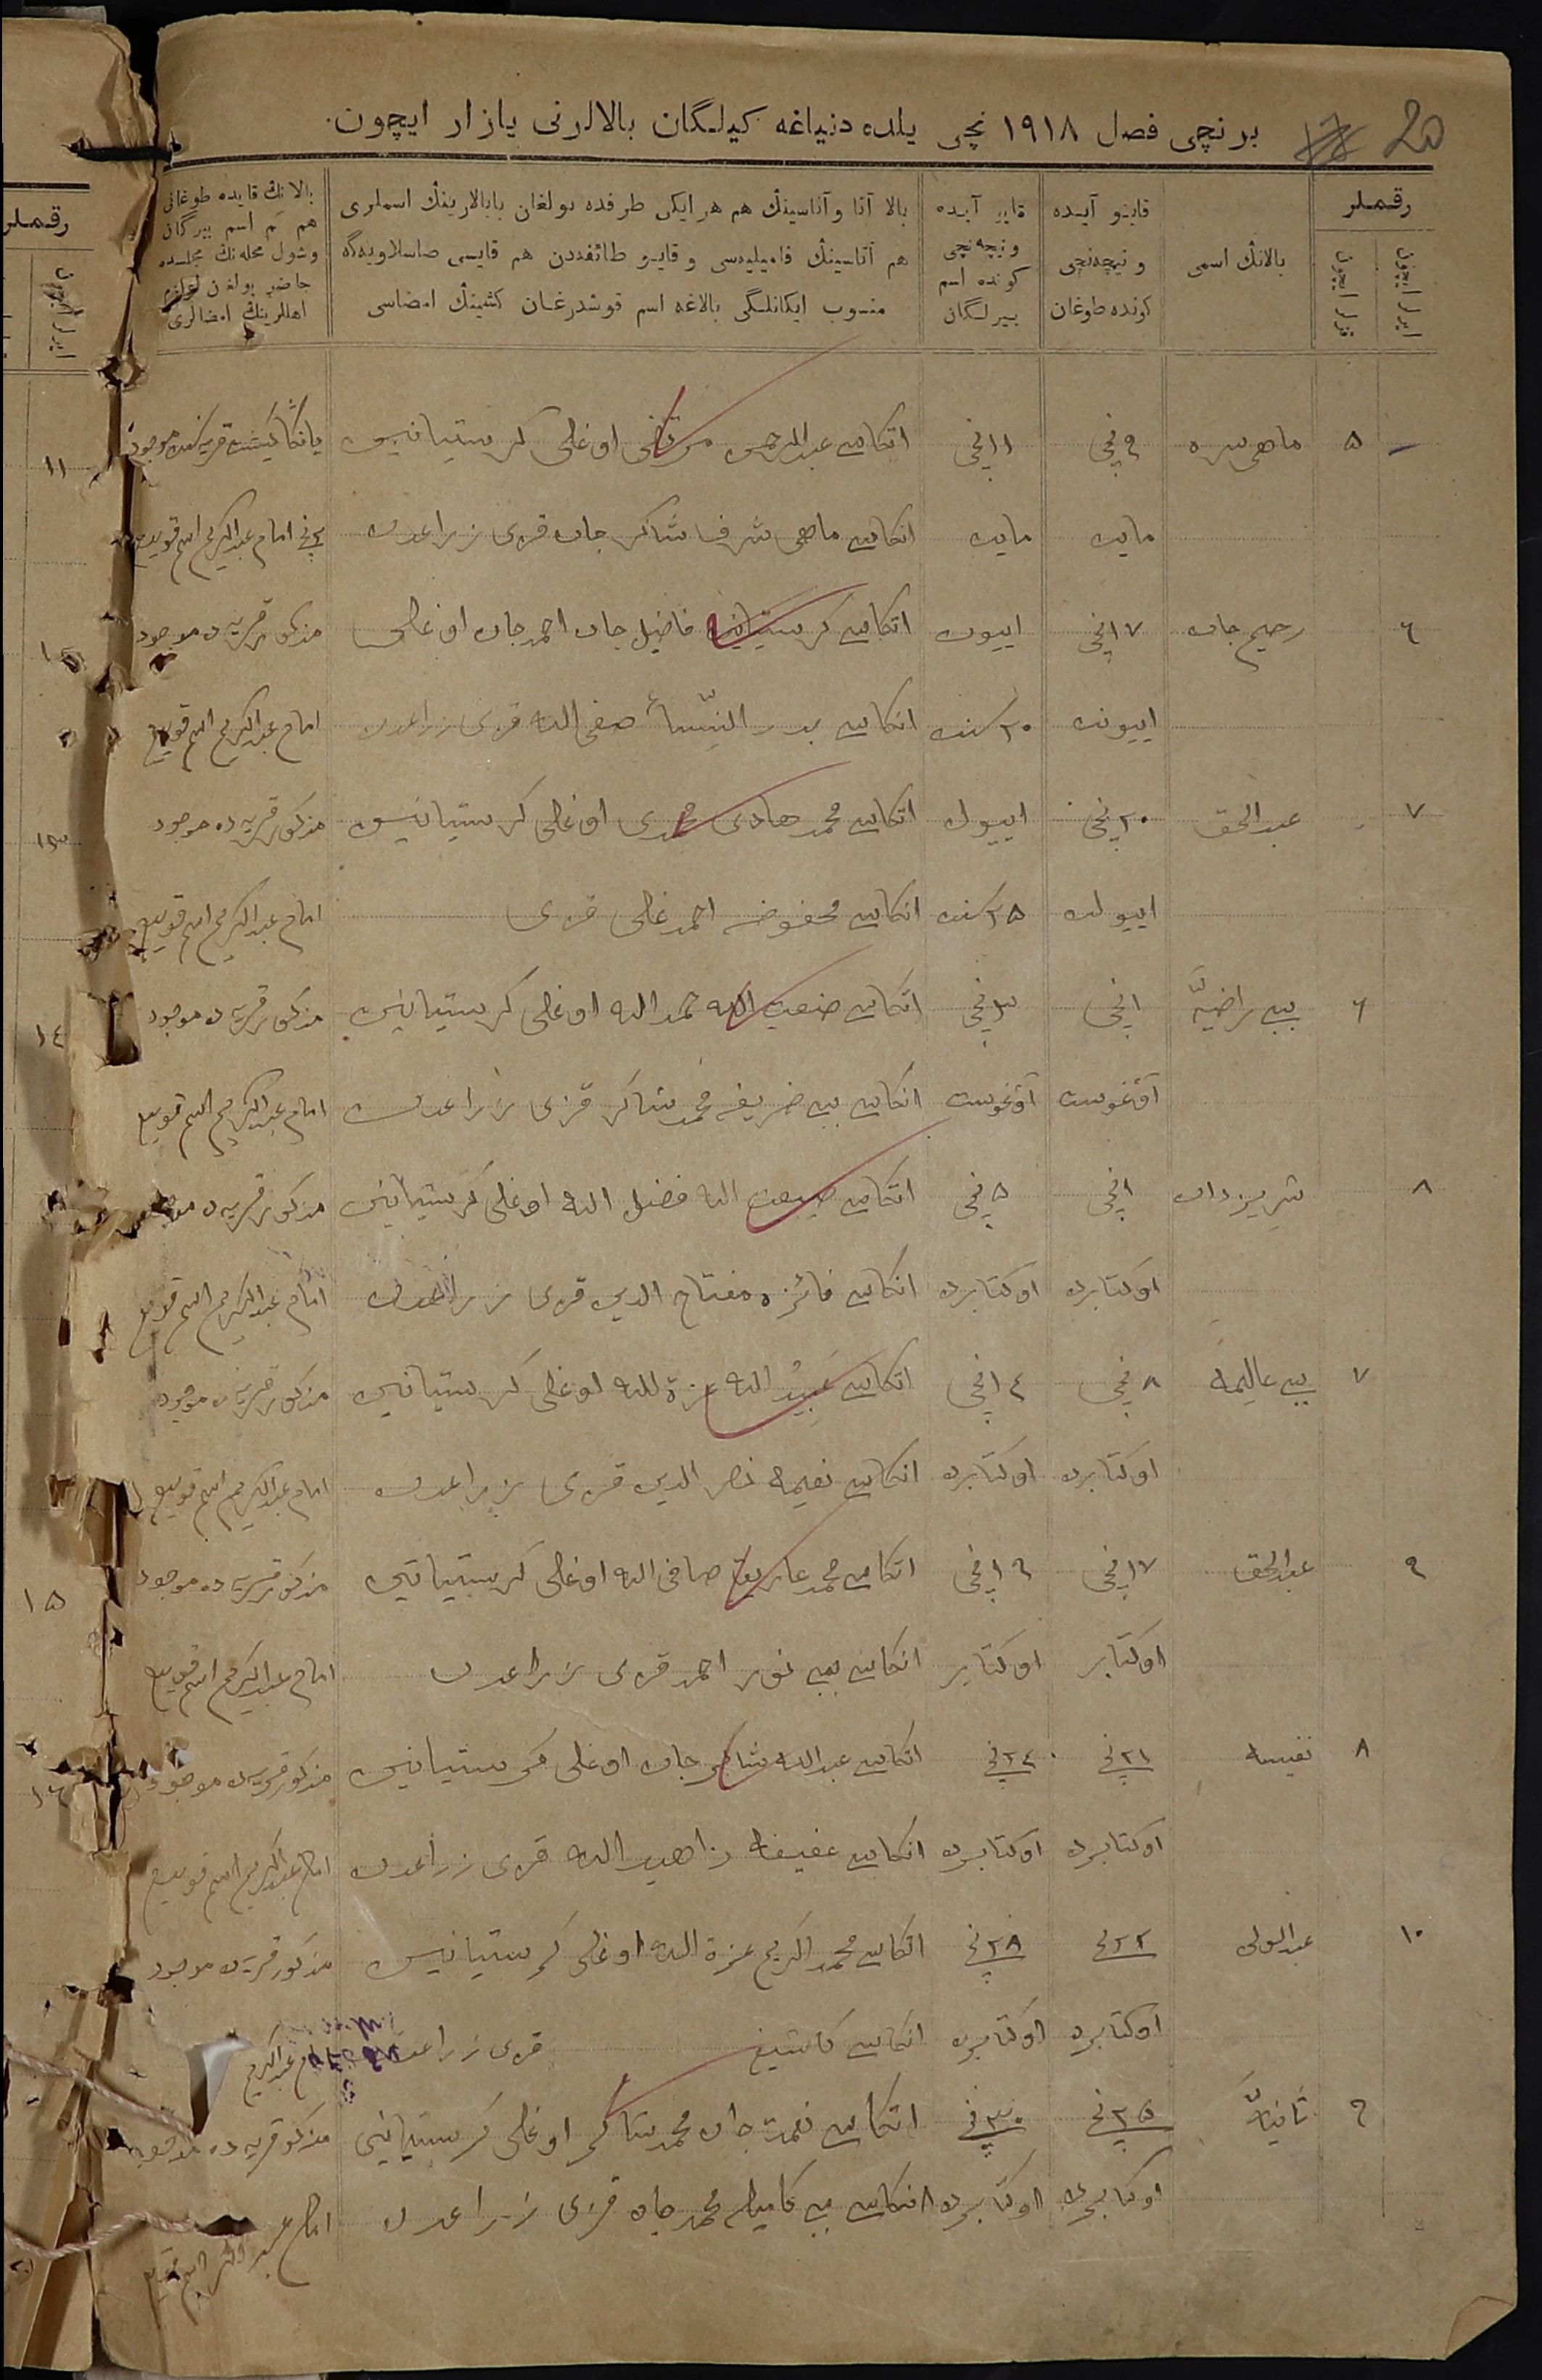 20
برنچی فصل ١٩١٨ نچی یلده دنیاغه کیلگان بالالرنی یازار ایچون.
رقملر
ایرلر ایچون
قزلر ایچون
بالانڭ اسمی
قایو آیده
و نیچه‌نچی
کونده طوغان
قایو آیده
و نیچه‌نچی
کونده اسم
بیرلگان
بالا آتا و آناسینڭ هم هر ایکی طرفده بولغان بابالارینڭ اسملری
هم آتاسینڭ فامیلیه‌سی و قایو طائفه‌دن هم قایسی صاسلاویه‌گه
منسوب ایکانلگی بالاغه اسم قوشدرغان کشینڭ امضاسی
بالانڭ قایده طوغانی
هم اسم بیرگان
وشول محله‌نڭ مجلسده
حاضر بولغن
اهللرینڭ امضالری
٥ ماهی سره ٩ نچی ١١ نچی اتکاسی عبدالرحمن مرتضی اوغلی کرستیانین قریه‌سنده موجود
مایده مایده انکاسی ماهی شرف شاکر جان قزی زراعدن امام عبدالکریم اسم قویدم
٦ رحیم جان ١٧ نچی اییون اتکاسی کرستیانین فاضیل جان احمد جان اوغلی مذکور قریه‌ده موجود
اییونده ٢٠ سنده انکاسی بدر النّساء صفی الله قزی زراعدن امام عبدالکریم اسم قویدم
٧ عبد الحق ٢٠ نچی اییول اتکاسی محمد هادی محمدی اوغلی کرستیانین مذکور قریه‌ده موجود
اییولده ٢٥ سنده انکاسی محفوضه احمد غلی قزی امام عبدالکریم اسم قویدم
٦ بیبی راضیهّ ١ نچی ٣ نچی اتکاسی صنعت الله حمد الله اوغلی کرستیانین مذکور قریه‌ده موجود
آوغوست آوغوست انکاسی بیبی ضریفه محمد شاکر قزی زراعدن امام عبدالکریم اسم قویدم
٨ ١ نچی ٥ نچی اتکاسی صبغت الله فضل الله اوغلی کرستیانین مذکور قریه‌ده موجود
اوکتابرده اوکتابرده انکاسی فائزه مفتاح الدین قزی زراعدن امام عبدالکریم اسم قویدم
٧ بیبی عالیمه ٨ نچی ١٤ نچی اتکاسی عبید الله عزة الله اوغلی کرستیانین مذکور قریه‌ده موجود
اوکتابرده اوکتابرده انکاسی نعیمه نصر الدین قزی زراعدن امام عبدالکریم اسم قویدم
٩ عبدالحق ١٧ نچی ١٩ نچی اتکاسی محمد عاریف صافی الله اوغلی کرستیانین مذکور قریه‌ده موجود
اوکتابر اوکتابر انکاسی بیبی نور احمد قزی زراعدن امام عبدالکریم اسم قویدم
٨ نفیسه ٢١ نچی ٢٤ نچی اتکاسی عبدالله شاکر جان اوغلی کرستیانین مذکور قریه‌ده موجود
اوکتابرده اوکتابرده انکاسی عفیفه ذاهید الله قزی زراعدن امام عبدالکریم اسم قویدم
١٠ عبدالولی ٢٢ نچی ٢٨ نچی اتکاسی محمد اکریم عزة الله اوغلی کرستیانین مذکور قریه‌ده موجود
اوکتابرده اوکتابرده انکاسی قزی زراعدن امام عبدالکریم
٩ ثانیهّ ٢٥ نچی ٣٠ نچی اتکاسی نعمت جان محمد شاکر اوغلی کرستیانین مذکور قریه‌ده
اوکتابرده اوکتابرده انکاسی بیبی کامیله محمد جان قزی زراعدن امام عبدالکریم اسم قویدم
رقملر
١١
١٤
١٥